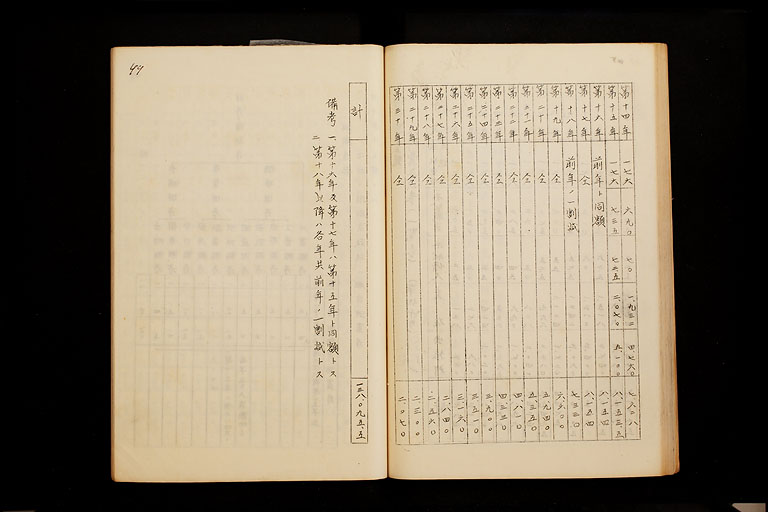 第十四年 一七六 六九〇 七〇 一、九三二 四七六〇 七六二八
第十五年 一七六 七三五 七六五 二、〇七〇 五一〇〇 八一五三、五
第十六年 前年ト同額 八一五四
第十七年 仝 八一五四
第十八年 前年ノ一割減 七三三〇
第十九年 仝 六六〇〇
第二十年 仝 五、九四〇
第二十一年 仝 五、三五〇
第二十二年 仝 四、八一〇
第二十三年 仝 四、三三〇
第二十四年 仝 三、九〇〇
第二十五年 仝 三、五一〇
第二十六年 仝 三、一六〇
第二十七年 仝 二、八四〇
第二十八年 仝 二、五六〇
第二十九年 仝 二、三〇〇
第三十年 仝 二、〇七〇
計 一三八〇九五、五
備考 一 第十六年及第十七年ハ第十五年ト同額トス
二 第十八年以降ハ各年共前年ノ一割減トス